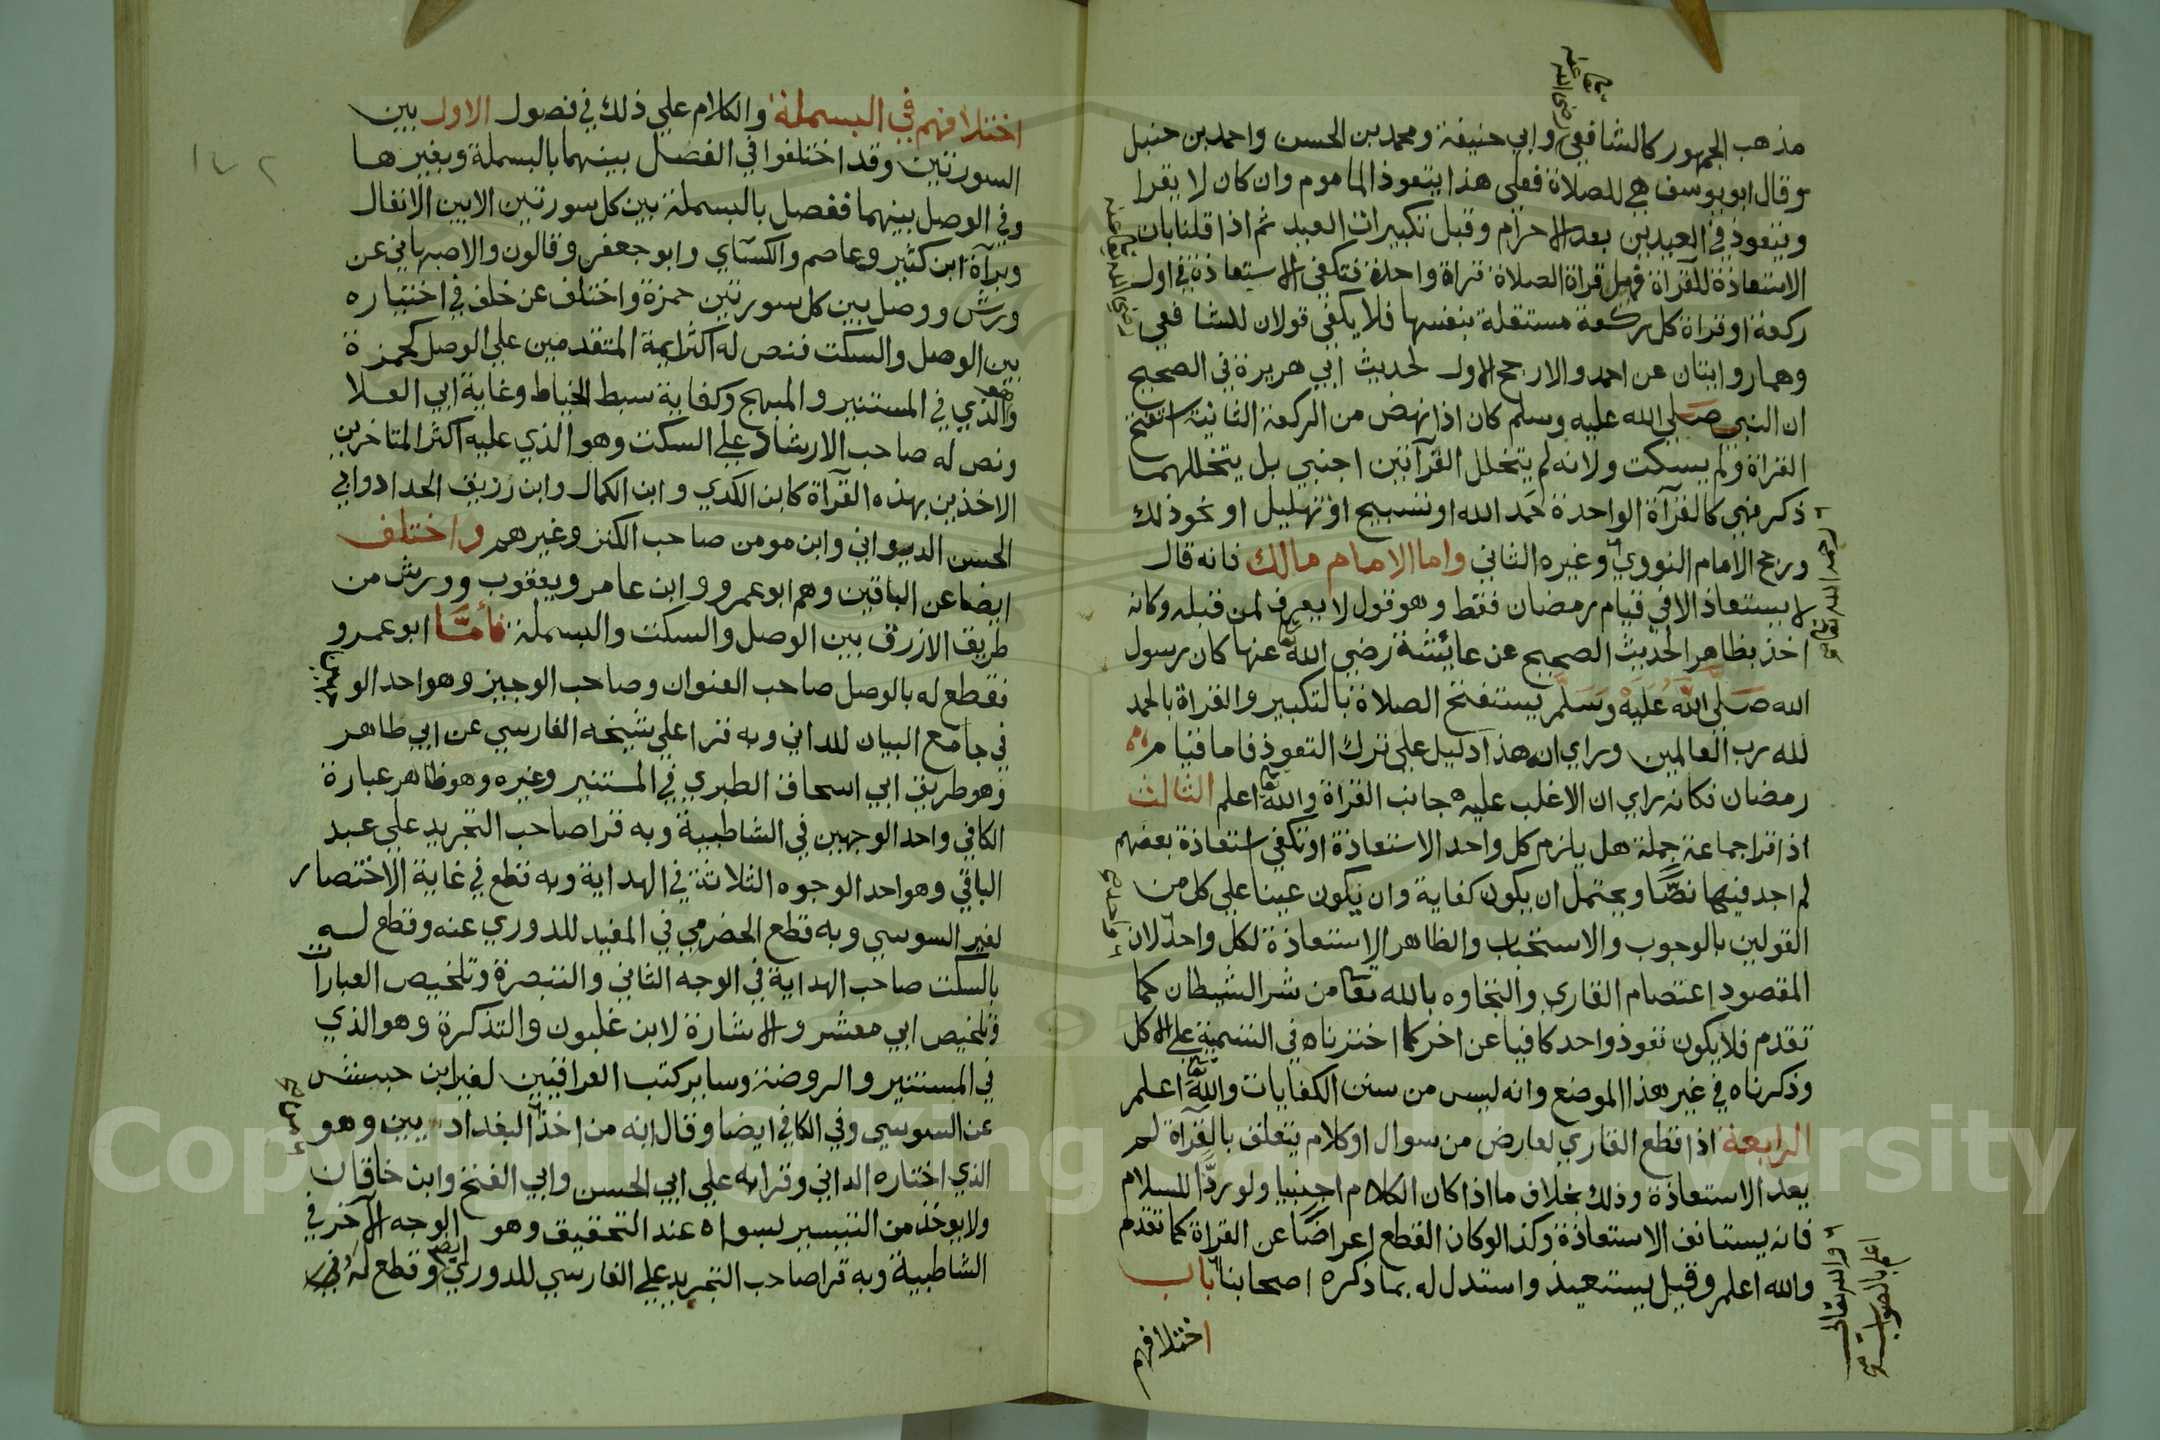 مذهب الجمهور كالشافعي وابي حنيفة ومحمد بن الحسن واحمد بن حنبل
وقال ابو يوسف هي للصلاة فعلى هذا يتعوذ الماموم وان كان لا يقرا
ويتعوذ في العيدين بعد الاحرام وقبل تكبيرات العيد ثم اذا قلنا بان
الاستعاذة للقراة فهل قراة الصلاة قراة واحدة فتكفي الاستعاذة في اول
ركعة او قراة كل ركعة مستقلة بنفسها فلا يكفي قولان للشافعي
وهما روايتان عن احمد والارجح الاول لحديث ابي هريرة في الصحيح
ان النبي صلى الله عليه وسلم كان اذا نهض من الركعة الثانية استفتح
القراة ولم يسكت ولانه لم يتخلل القرآتين اجنبي بل يتخللهما
ذكر فهي كالقرآة الواحدة حمد الله او تسبيح او تهليل او نحو ذلك
ورجح الامام النووي وغيره الثاني واما الامام مالك فانه قال
لا يستعاذ الا في قيام رمضان فقط وهو قول لا يعرف لمن قبله وكانه
اخذ بظاهر الحديث الصحيح عن عايشة رضي الله عنها كان رسول
الله صَلَّى اللَّه عَلَيْه وَسَلَّم يستفتح الصلاة بالتكبير والقراة بالحمد
لله رب العالمين وراي ان هذا دليل على ترك التعوذ فاما قيام
رمضان فكانه راي ان الاغلب عليه جانب القراة والله اعلم الثالث
اذا قرا جماعة جملة هل يلزم كل واحد الاستعاذة او تكفي استعاذة بعضهم
لم اجد فيها نصًّا ويحتمل ان يكون كفاية وان يكون عينا على كل من
القولين بالوجوب والاستحباب والظاهر الاستعاذة لكل واحد لان
المقصود اعتصام القاري والتجاوه بالله تعا من شر الشيطان كما
تقدم فلا يكون تعوذ واحد كافيا عن اخر كما اخترناه في التسمية على الاكل
وذكرناه في غير هذا الموضع وانه ليس من سنن الكفايات والله اعلم
الرابعة اذا قطع القاري لعارض من سوال او كلام يتعلق بالقرآة لم
يعد الاستعاذة وذلك بخلاف ما اذا كان الكلام اجنبيا ولو ردًّا للسلام
فانه يستانف الاستعاذة وكذا لو كان القطع اعراضًا عن القراة كما تقدم
والله اعلم وقيل يستعيذ واستدل له بما ذكره اصحابنا باب
اختلافهم
رضي الله عنه
رضي الله تعالى عنه
رحمه الله تعالى
والله تعالى
اعلم بالصواب
اختلافهم في البسملة والكلام علي ذلك في فصول الاول بين
السورتين وقد اختلفوا في الفصل بينهما بالبسملة وبغيرها
وفي الوصل بينهما ففصل بالبسملة بين كل سورتين الا بين الانفال
وبرآة ابن كثير وعاصم والكسآي وابو جعفر وقالون والاصبهاني عن
ورش ووصل بين كل سورتين حمزة واختلف عن خلف في اختياره
بين الوصل والسكت فنص له اكثر ايمة المتقدمين علي الوصل كحمزة
والذي في المستنير والمبهج وكفاية سبط الخياط وغاية ابي العلا
ونص له صاحب الارشاد علي السكت وهو الذي عليه اكثر المتاخرين
الاخذين بهذه القرآة كابن الكدي وابن الكمال وابن زريق الحداد وابي
الحسن الديواني وابن مومن صاحب الكنز وغيرهم واختلف
ايضا عن الباقين وهم ابو عمرو وابن عامر ويعقوب وورش من
طريق الازرق بين الوصل والسكت والبسملة فأمَّا ابو عمرو
فقطع له بالوصل صاحب العنوان وصاحب الوجيز وهو احد الو
في جامع البيان للداني وبه قرا علي شيخه الفارسي عن ابي طاهر
وهو طريق ابي اسحاق الطبري في المستنير وغيره وهو ظاهر عبارة
الكافي واحد الوجهين في الشاطبية وبه قرا صاحب التجريد علي عبد
الباقي وهو احد الوجوه الثلاثة في الهداية وبه قطع في غاية الاختصار
لغير السوسي وبه قطع الحضرمي في المفيد للدوري عنه وقطع له
بالسكت صاحب الهداية في الوجه الثاني والتبصرة وتلخيص العبارات
وتلخيص ابي معشر والاشارة لابن غلبون والتذكرة وهو الذي
في المستنير والروضة وساير كتب العراقيين لغير ابن حبش
عن السوسي وفي الكافي ايضا وقال انه من اخذ البغداديين وهو
الذي اختاره الداني وقرا به علي ابي الحسن وابي الفتح وابن خاقان
ولا يوخذ من التيسير بسواه عند التحقيق وهو الوجه الآخر في
الشاطبية وبه قرا صاحب التجريد علي الفارسي للدوري ايضا وقطع له في
١٤٢
Copyright © King Saud University